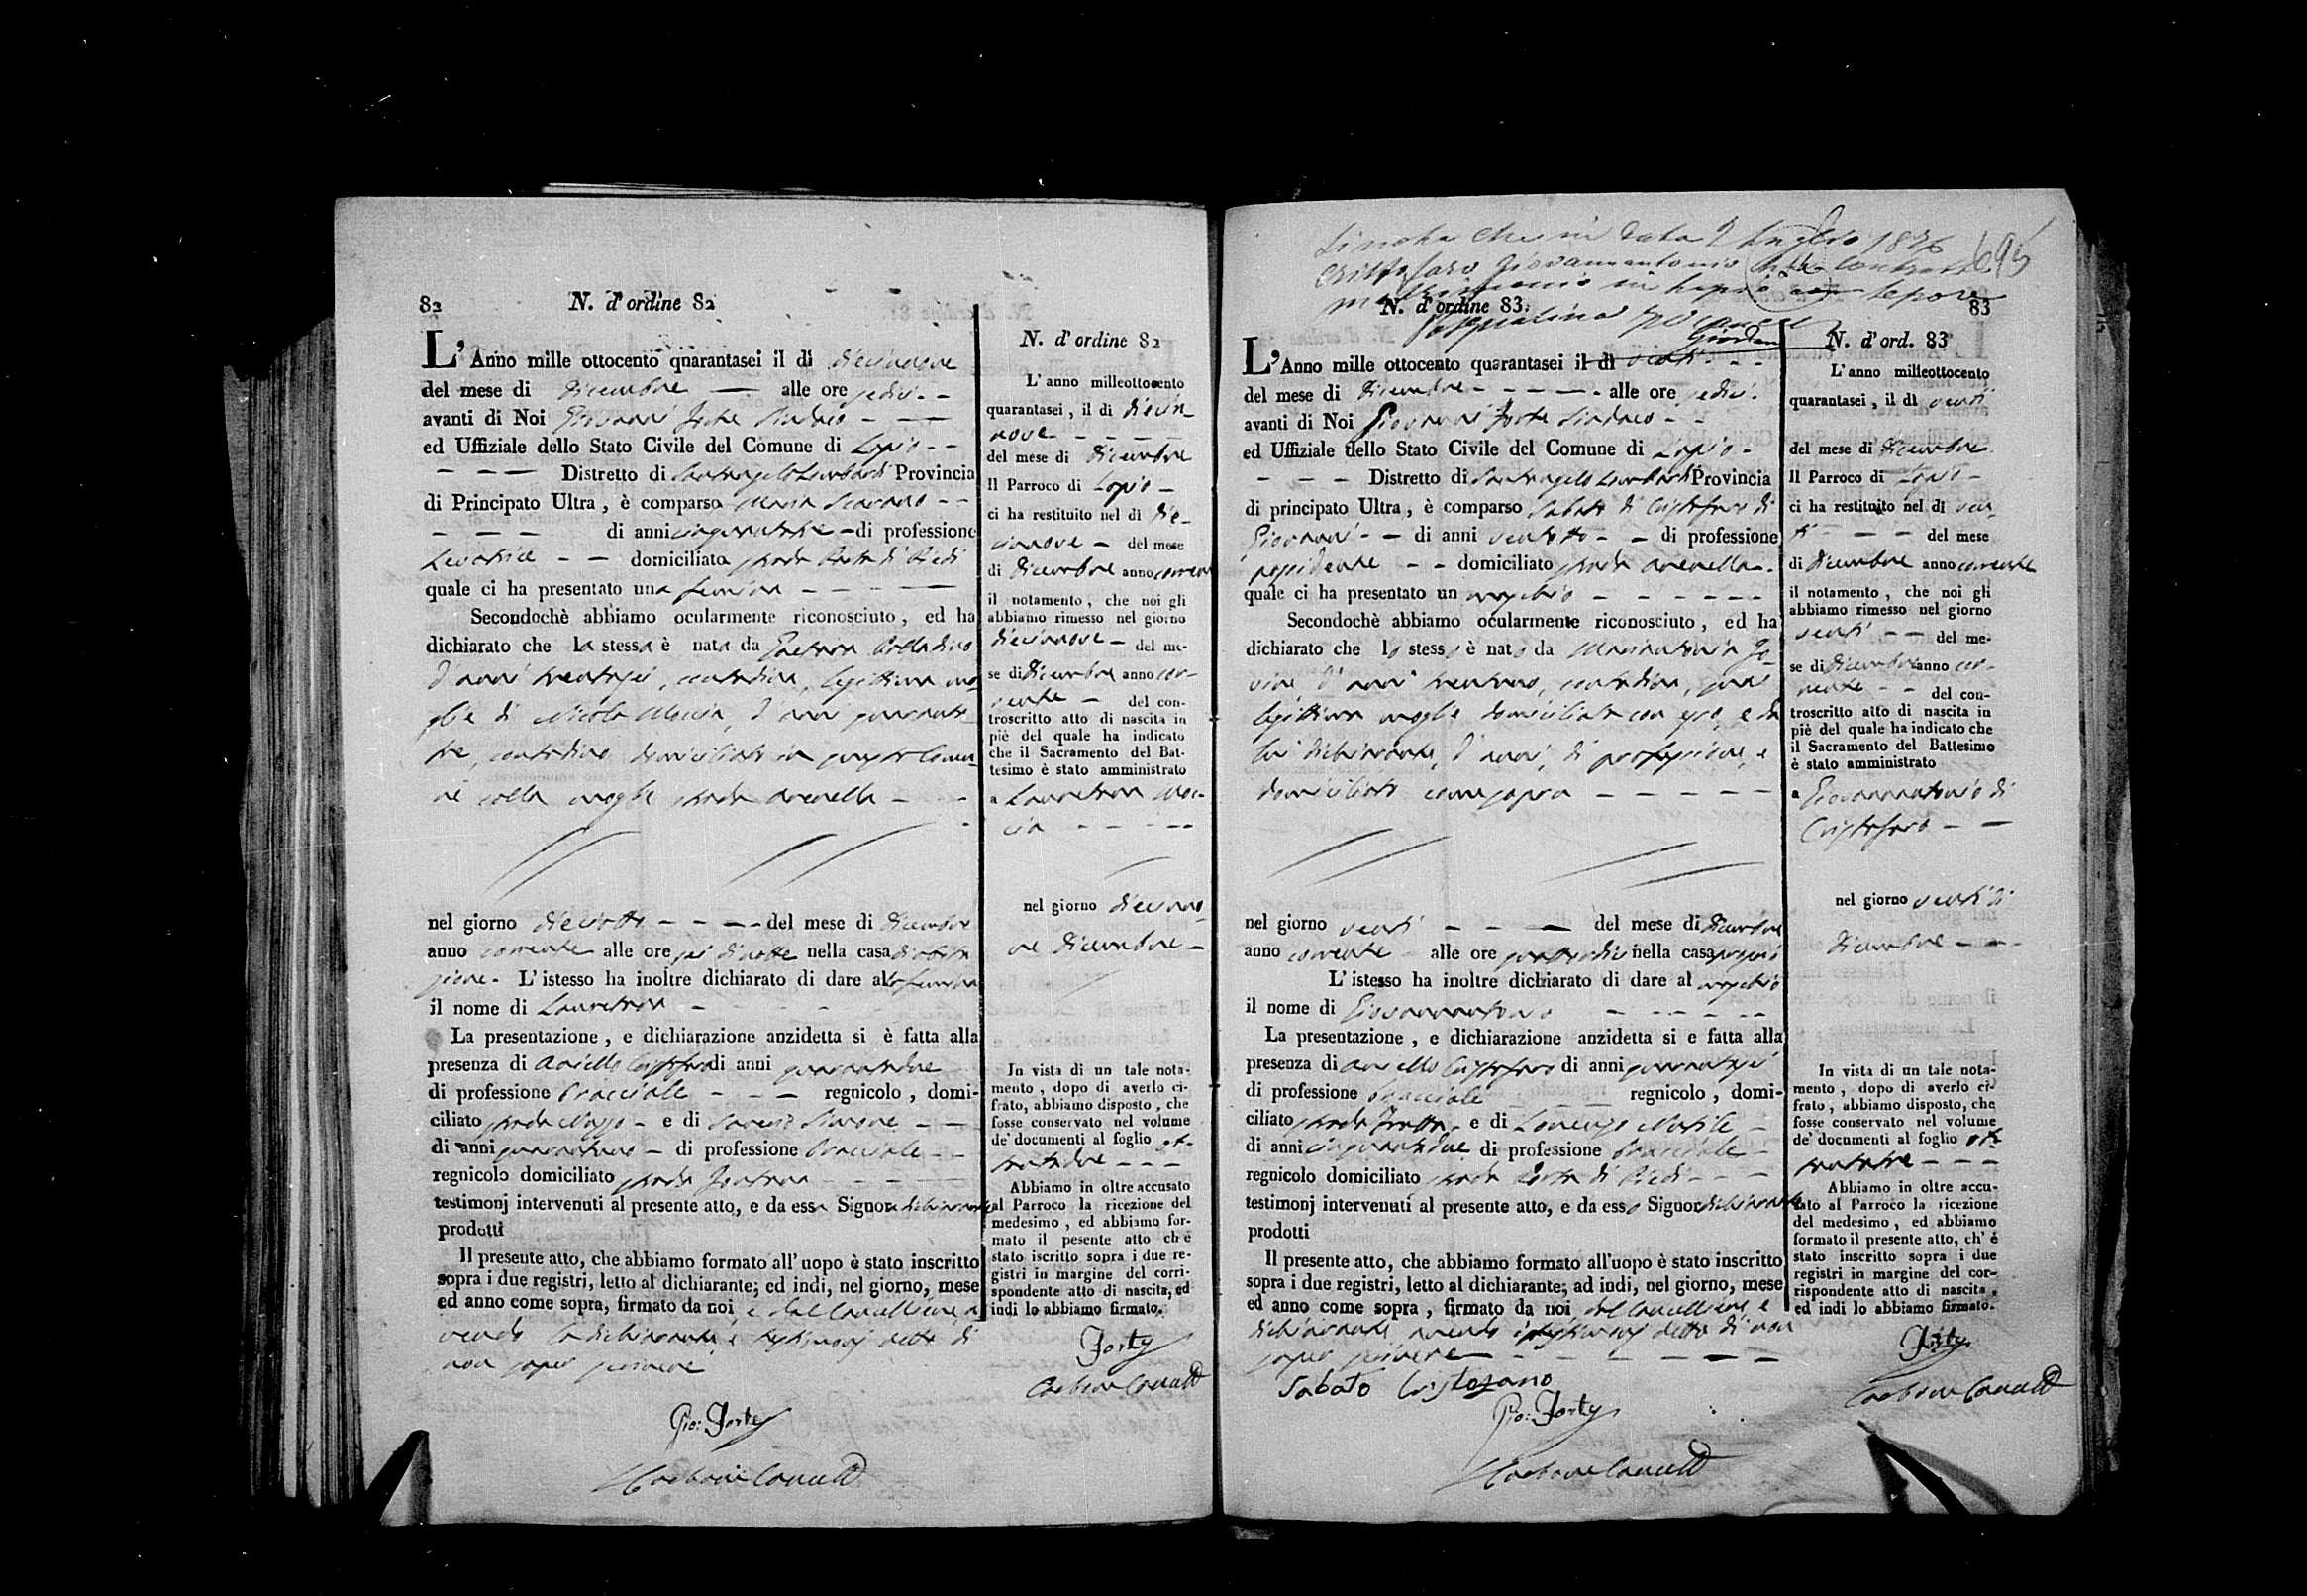 82
N. d'ordine 82
L'Anno mille ottocento quarantasei il dì diecinove
del mese di Dicembre — alle ore sedici - -
avanti di Noi Giovanni Forte Sindaco - - —
ed Uffiziale dello Stato Civile del Comune di Lapio - -
- - — Distretto di Santangelo Lombardi Provincia
di Principato Ultra, è comparsa Maria Scarano - -
- - — di anni cinquantatre - di professione
Levatrice - - domiciliata strada Porta di Piedi
quale ci ha presentato una femina - - - - —
Secondochè abbiamo ocularmente riconosciuto, ed ha
dichiarato che la stessa è nata da Gaetana
d'anni trentasei, contadina, legittima mo-
glie di Nicola Moccia, d'anni quaranta-
tre, contadino domiciliato in questo Comu-
ne colla moglie strada Arenella - - -
nel giorno dieciotto - - - - del mese di Dicembre
anno corrente alle ore sei di notte nella casa di abita
zione - L'istesso ha inoltre dichiarato di dare alla femina
il nome di Lauretana -
La presentazione, e dichiarazione anzidetta si è fatta alla
presenza di Aniello Cristofaro di anni quarantadue
di professione Bracciale - - — regnicolo, domi-
ciliato strada - e di Simone - —
di anni - di professione Bracciale - -
regnicolo domiciliato strada Fontana - - - -
testimonj intervenuti al presente atto, e da essa Signora dichiarante
prodotti
Il presente atto, che abbiamo formato all'uopo è stato inscritto
sopra i due registri, letto al dichiarante; ed indi, nel giorno, mese
ed anno come sopra, firmato da noi, e dal Cancelliere, a
vendo la dichiarante e testimonj detto di
non saper scrivere
Gio: Forte
N. d'ordine 82
L'anno milleottocento
quarantasei, il dì diecin-
nove - - - -
del mese di Dicembre
Il Parroco di Lapio -
ci ha restituito nel dì die-
cinnove - del mese
di Dicembre anno corrente
il notamento, che noi gli
abbiamo rimesso nel giorno
diecinove - del me-
se di Dicembre anno cor-
rente - del con-
troscritto atto di nascita in
piè del quale ha indicato
che il Sacramento del Bat-
tesimo è stato amministrato
a Lauretana Moc-
cia - - - - -
nel giorno diecino-
ve Dicembre -
In vista di un tale nota-
mento, dopo di averlo ci-
frato, abbiamo disposto, che
fosse conservato nel volume
de' documenti al foglio ot-
tantadue - - -
Abbiamo in oltre accusato
al Parroco la ricezione del
medesimo, ed abbiamo for-
mato il pesente atto ch'è
stato iscritto sopra i due re-
gistri in margine del corri-
spondente atto di nascita, ed
indi lo abbiamo firmato.
Forte
Si nota che in data 2 Luglio 1876
Cristofaro Giovannantonio ha contratto
matrimonio in Lapio con
Pasqualina
83
N. d'ordine 83.
L'Anno mille ottocento quarantasei il dì venti - -
del mese di Dicembre - - - - alle ore sedici -
avanti di Noi Giovanni Forte Sindaco - -
ed Uffiziale dello Stato Civile del Comune di Lapio -
- - - Distretto di Santangelo Lombardi Provincia
di principato Ultra, è comparso Sabato di Cristofaro di
Giovanni - - di anni ventotto - - di professione
possidente - - domiciliato strada Arenella -
quale ci ha presentato un maschio - - - - - -
Secondochè abbiamo ocularmente riconosciuto, ed ha
dichiarato che lo stesso è nato da Mariantonia
d'anni trentuno, contadina, sua
legittima moglie domiciliata con esso, e da
lui dichiarante, d'anni, di professione, e
domiciliato come sopra - - - - -
nel giorno venti - - — del mese di Dicembre
anno corrente alle ore quattordici nella casa propria
L'istesso ha inoltre dichiarato di dare al maschio
il nome di Giovannantonio - - - - -
La presentazione, e dichiarazione anzidetta si e fatta alla
presenza di Aniello Cristofaro di anni quarantasei
di professione Bracciale - - — regnicolo, domi-
ciliato strada Fratta, e di Lorenzo -
di anni cinquantadue di professione Bracciale -
regnicolo domiciliato strada Porta di Piedi - - -
testimonj intervenuti al presente atto, e da esso Signor dichiarante
prodotti
Il presente atto, che abbiamo formato all'uopo è stato inscritto
sopra i due registri, letto al dichiarante; ad indi, nel giorno, mese
ed anno come sopra, firmato da noi dal Cancelliere, e
dichiarante, avendo i testimonj detto di non
saper scrivere - - - - - -
Sabato Cristofano
Gio: Forte
N. d'ord. 83
L'anno milleottocento
quarantasei, il dì venti
del mese di Dicembre
Il Parroco di Lapio -
ci ha restituito nel dì ven-
ti - - - del mese
di Dicembre anno corrente
il notamento, che noi gli
abbiamo rimesso nel giorno
venti - - del me-
se di Dicembre anno cor-
rente - - del con-
troscritto atto di nascita in
piè del quale ha indicato che
il Sacramento del Battesimo
è stato amministrato
a Giovannantonio di
Cristofaro - -
nel giorno venti di
Dicembre - - -
In vista di un tale nota-
mento, dopo di averlo ci-
frato, abbiamo disposto, che
fosse conservato nel volume
de' documenti al foglio ot-
tantatre - - -
Abbiamo in oltre accu-
sato al Parroco la ricezione
del medesimo, ed abbiamo
formato il presente atto, ch'è
stato inscritto sopra i due
registri in margine del cor-
rispondente atto di nascita,
ed indi lo abbiamo firmato.
Forte